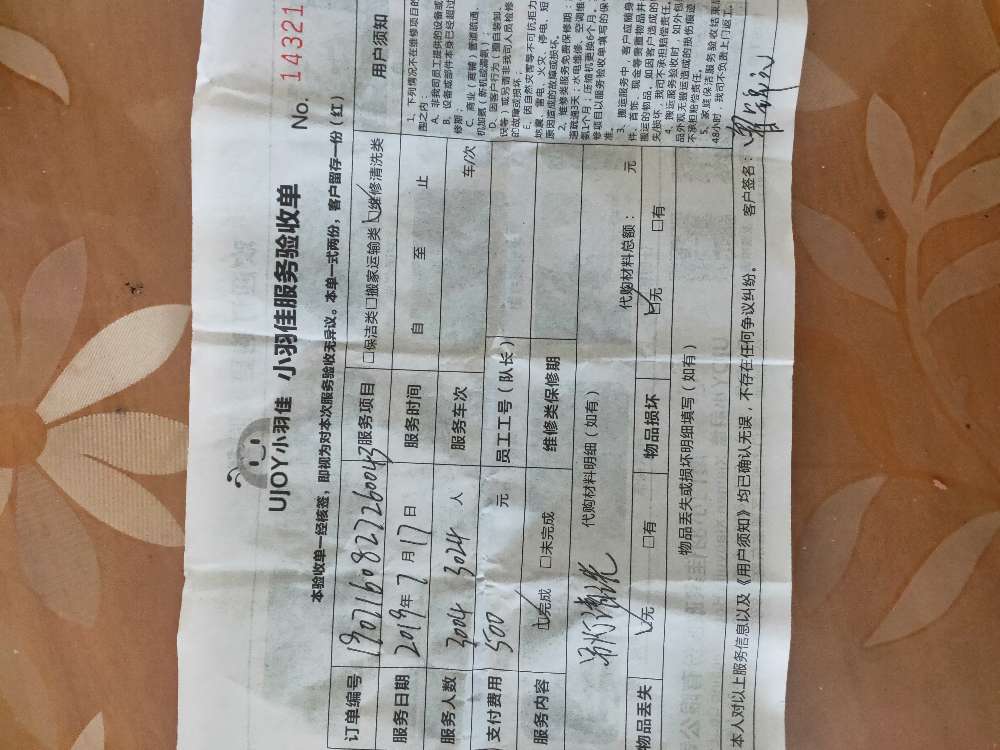 UJOY小羽佳 小羽佳服务验收单
No. 14321
本验收单一经核签，即视为对本次服务验收无异议。本单一式两份，客户留存一份（红）
订单编号 1902160827260043 服务项目 □保洁类□搬家运输类☑维修清洗类
服务日期 2019年7月17日 服务时间 自 至 止
服务人数 3004 3024 人 服务车次 车/次
支付费用 500 元 员工工号（队长）
服务内容 ☑完成 □未完成 维修类保修期
清洗 代购材料明细（如有） 代购材料总额： 元
物品丢失 ☑无 □有 物品损坏 ☑无 □有
物品丢失或损坏明细填写（如有）
本人对以上服务信息以及《用户须知》均已确认无误，不存在任何争议纠纷。 客户签名：
用户须知
1、下列情况不在维修项目的
围之内：
A、非我司员工提供的设备或
B、设备或部件本身已经超过
修期；
C、商业（商铺）管道疏通、
机加氨（新机或漏氨）；
D、因客户行为（擅自装卸、
误等）或另请非我司人员检修
的故障或损坏；
E、因自然灾害等不可抗拒力
地震、雷电、火灾、停电、短
原因造成的故障或损坏。
2、维修类服务免费保修期：
氨1个月，压缩机更换6个月。
修项目以服务验收单填写的保
准。
3、搬运服务中，客户应随身
件、首饰、现金等贵重物品并
搬运的物品，如因客户造成的
失/损坏，我司不承担赔偿责任。
4、搬运服务验收时，如外包
品外观无搬运造成的损伤痕迹
不承担赔偿责任。
5、家庭保洁服务验收结束
48小时，我司不负责上门返工。